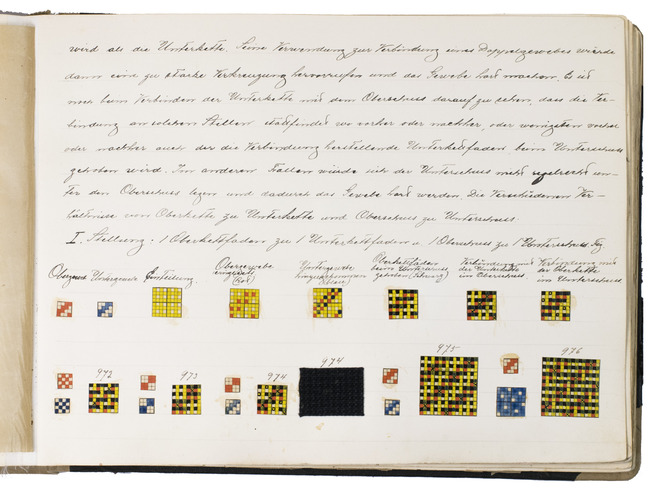 wird als die Unterkette. Seine Verwendung zur Verbindung eines Doppelgewebes würde
dann eine zu starke Verkreuzung hervorrufen und das Gewebe hart machen. Es ist
noch beim Verbinden der Unterkette mit dem Oberschuss darauf zu sehen, dass die Ver-
bindung an solchen Stellen stattfindet wo vorher oder nachher, oder wenigsten vorher
oder nachher auch der die Verbindung herstellende Unterkettfaden, beim Unterschuss
gehoben wird. Im anderen Fallen würde sich der Unterschuss mehr un-
ter den Oberschuss legen und dadurch das Gewebe hart werden. Die Verschiedenen Ver-
hältnisse von Oberkette zu Unterkette und Oberschuss zu Unterschuss.
I. Stellung: 1 Oberkettfaden zu 1 Unterkettfaden u. 1 Oberschuss zu 1 Unterschuss
Obergewebe Untergewebe Einteilung Obergewebe (Rot) Untergewebe (Blau) Oberkettfaden beim Unterschuss gehoben Verbindung mit der Unterkette im Oberschuss Verbindung mit der Oberkette im Unterschuss
972 973 974 974 975 976